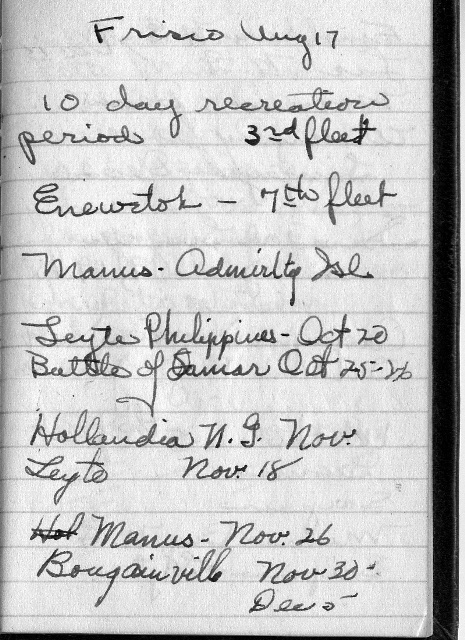 Frisco Aug 17
10 day recreation
period 3rd fleet
Enewetok - 7th fleet
Manus - Admirlty Isl.
Leyte Philippines - Oct 20
Battle of Samar Oct 25-26
Hollandia N.G. Nov.
Leyte Nov. 18
Hol Manus - Nov. 26
Bougainvill Nov 30 -
Dec 5